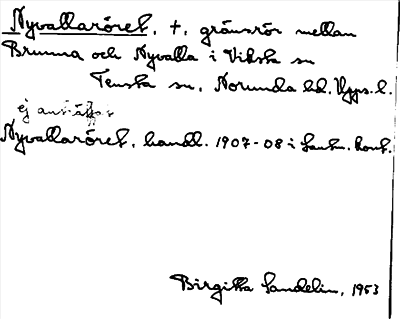 Nyvallaröret, +, gränsrör mellan
Brunna och Nyvalla i Viksta sn
Tensta sn, Norunda hd, Upps. l.
ej
Nyvallaröret, handl. 1907-08 i Lantm. kont.
Birgitta Sandelin, 1953